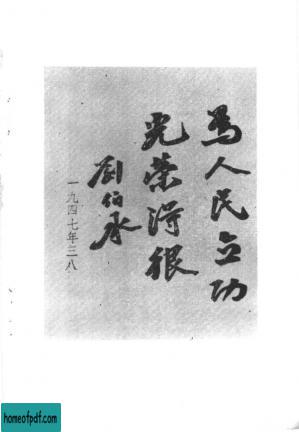 為人民立功
光荣得很
劉伯承
一九四七年三八
homeofpdf.com